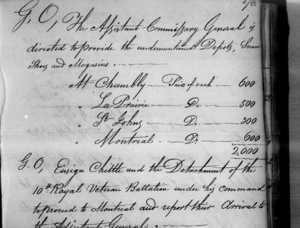 G. O, The Assistant Commissary General is
directed to provide the undermentioned Depots, Snow
Shoes and Mogasins
At Chambly — Two of each — 600
La Prairie — Do — 500
St Johns — Do — 300
Montreal — Do — 600
2,000
G. O, Ensign Chittle and the Detachment of the
10th Royal Veteran Battalion under his command
to proceed to Montreal and report their Arrival to
the Adjutant General